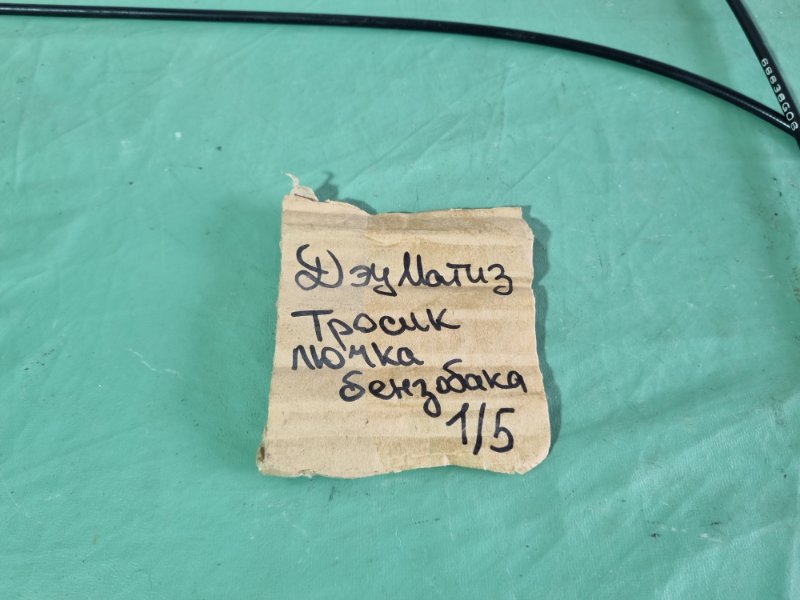 Дэу Матиз
Тросик
лючка
бензобака
1/5